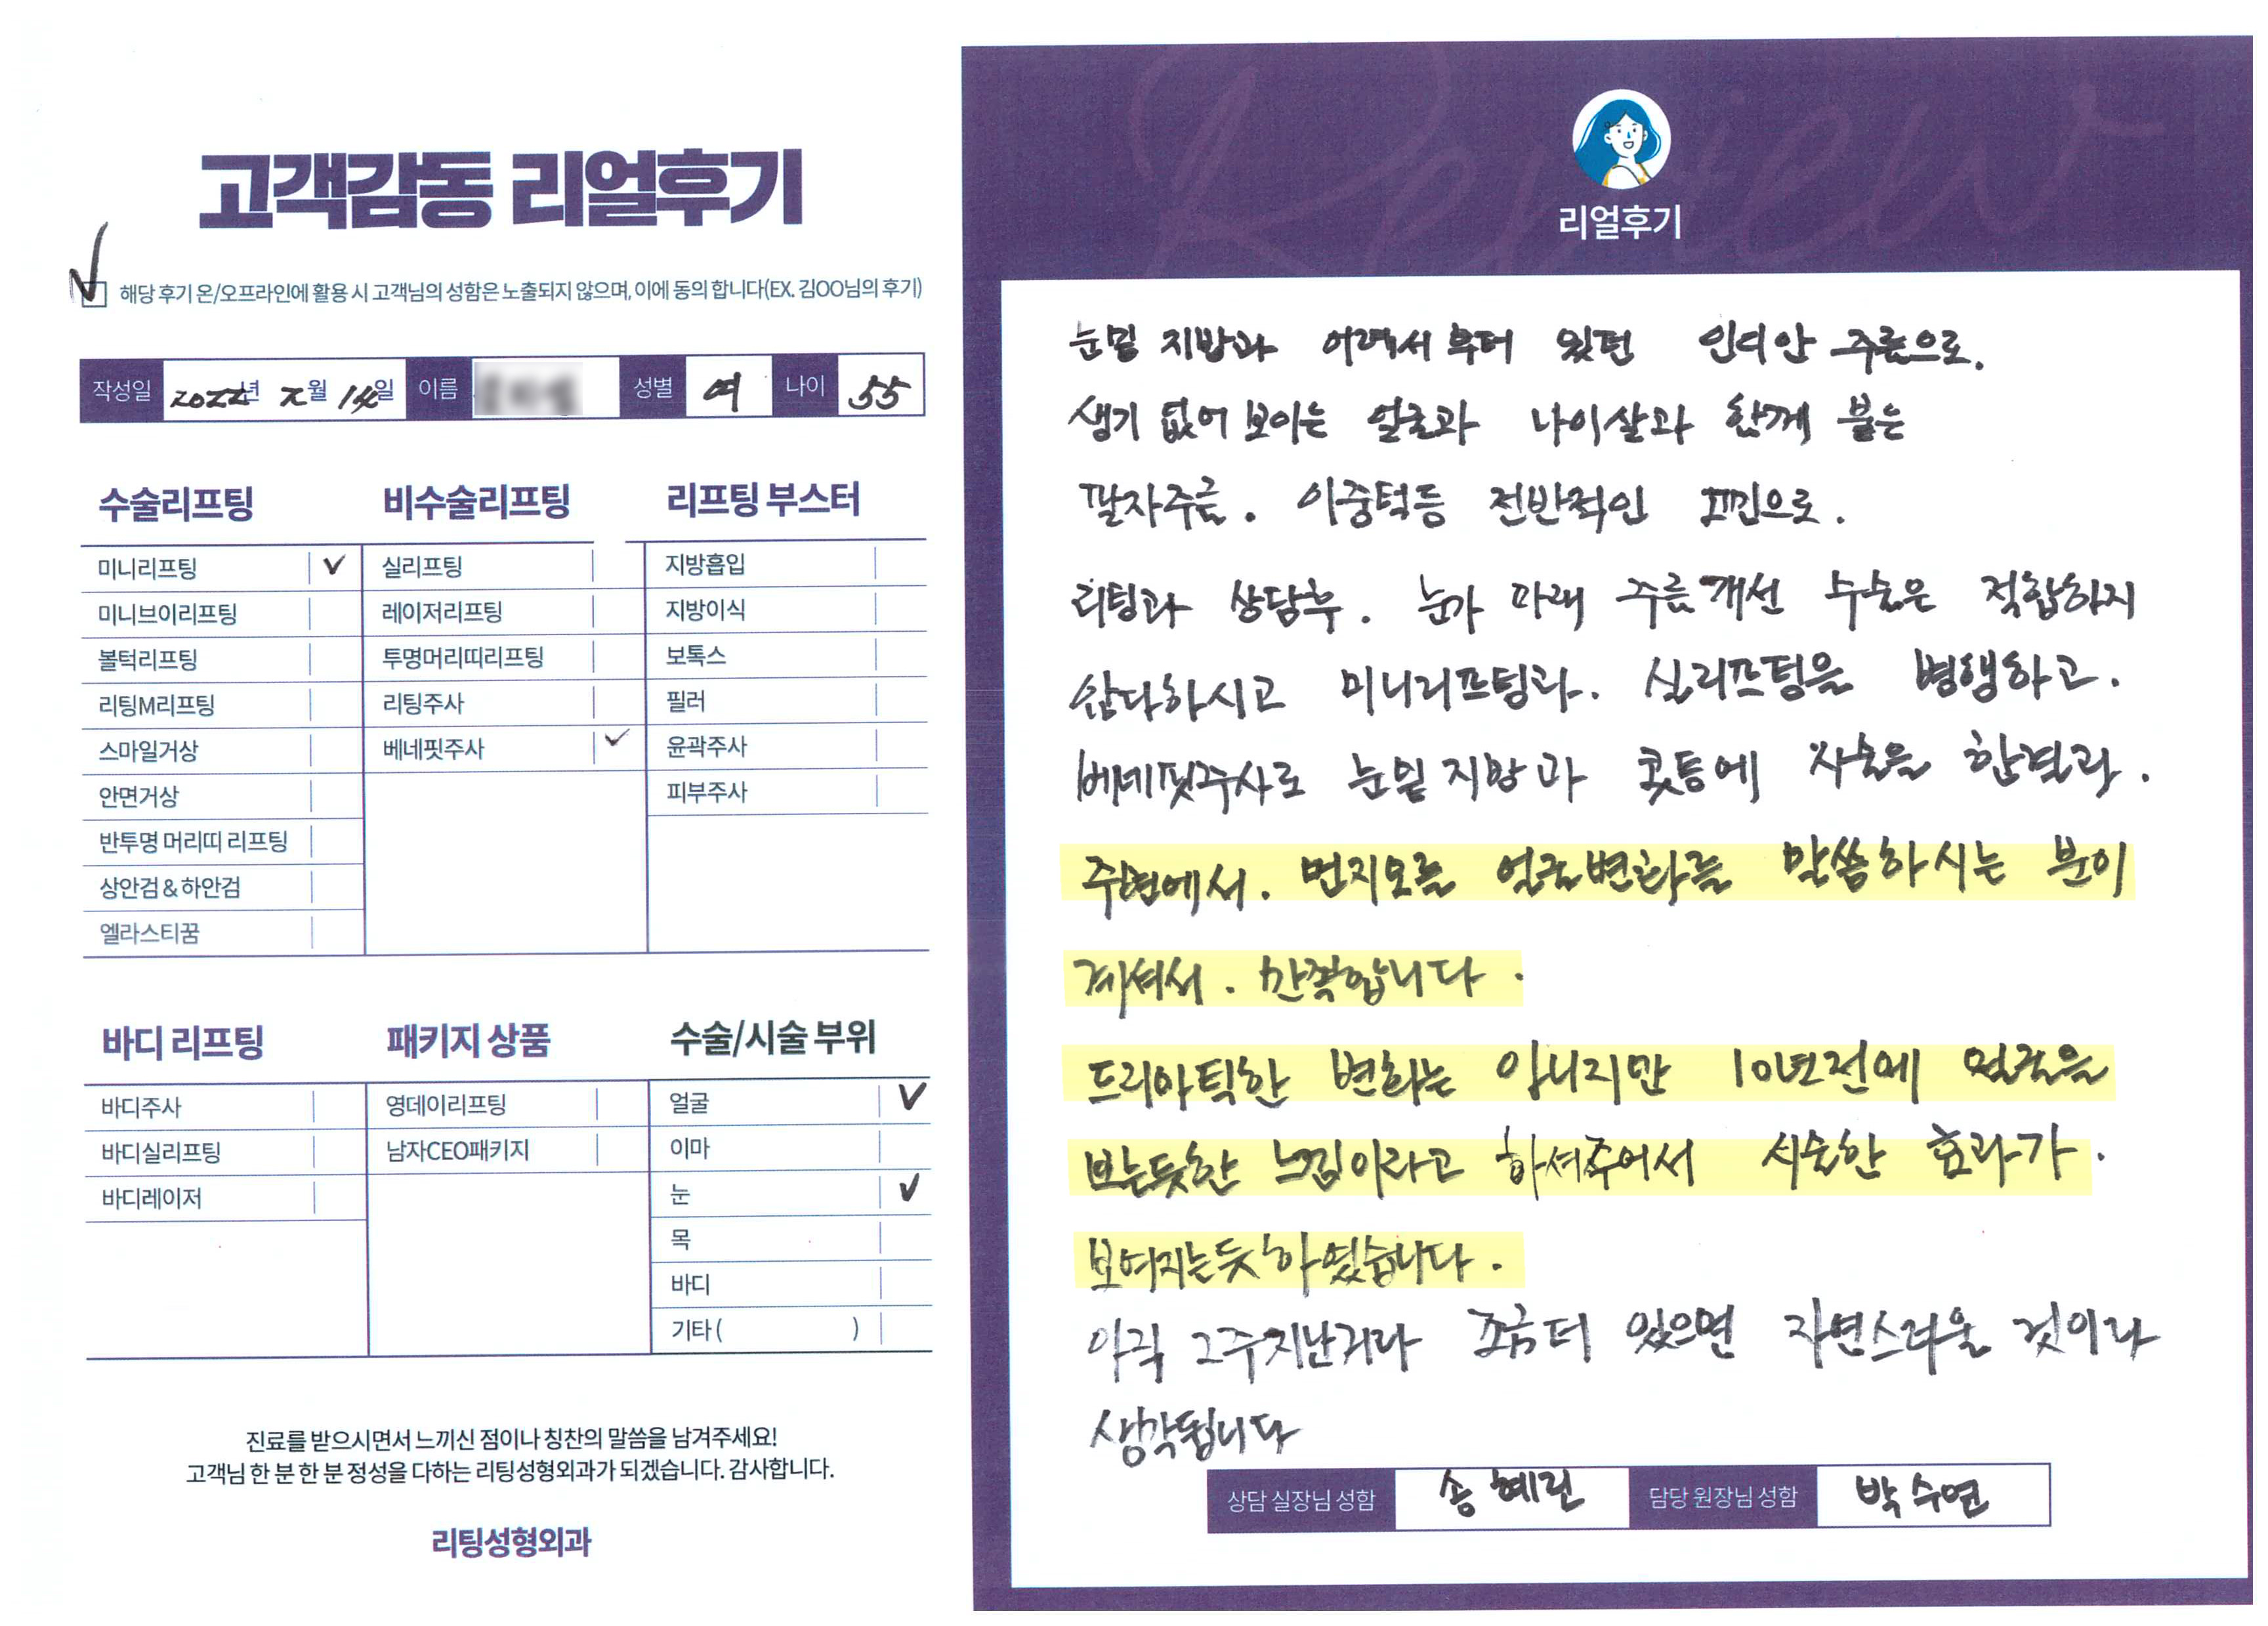 고객감동 리얼후기
해당 후기 온/오프라인에 활용 시 고객님의 성함은 노출되지 않으며, 이에 동의 합니다(EX. 김OO님의 후기)
작성일 2022년 2월 14일 이름 성별 여 나이 55
수술리프팅
미니리프팅
미니브이리프팅
볼턱리프팅
리팅M리프팅
스마일거상
안면거상
반투명 머리띠 리프팅
상안검&하안검
엘라스티꿈
비수술리프팅
실리프팅
레이저리프팅
투명머리띠리프팅
리팅주사
베네핏주사
리프팅 부스터
지방흡입
지방이식
보톡스
필러
윤곽주사
피부주사
바디 리프팅
바디주사
바디실리프팅
바디레이저
패키지 상품
영데이리프팅
남자CEO패키지
수술/시술 부위
얼굴
이마
눈
목
바디
기타( )
진료를 받으시면서 느끼신 점이나 칭찬의 말씀을 남겨주세요!
고객님 한 분 한 분 정성을 다하는 리팅성형외과가 되겠습니다. 감사합니다.
리팅성형외과
Review
리얼후기
눈밑 지방과 어려서부터 있던 인디안 주름으로.
생기 없어 보이는 얼굴과 나이살과 함께 붙은
팔자주름. 이중턱등 전반적인 고민으로.
리팅과 상담후. 눈가 아래 주름개선 수술은 적합하지
않다하시고 미니리프팅과. 실리프팅을 병행하고.
베네핏주사로 눈밑지방과 콧등에 시술을 한결과.
주변에서. 먼지모를 얼굴변화를 말씀하시는 분이
계셔서. 만족합니다.
드라마틱한 변화는 아니지만 10년전에 얼굴을
보는듯한 느낌이라고 하셔주어서 시술한 효과가.
보여지는듯 하였습니다.
아직 2주지난거라 조금더 있으면 자연스러울 것이라
생각됩니다
상담 실장님 성함 송혜린 담당 원장님 성함 박수연